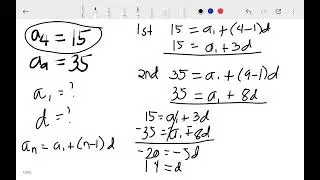 a₄ = 15
a₉ = 35
a₁ = ?
d = ?
aₙ = a₁ + (n-1)d
1st 15 = a₁ + (4-1)d
15 = a₁ + 3d
2nd 35 = a₁ + (9-1)d
35 = a₁ + 8d
15 = a₁ + 3d
-35 = a₁ + 8d
-20 = -5d
14 = d